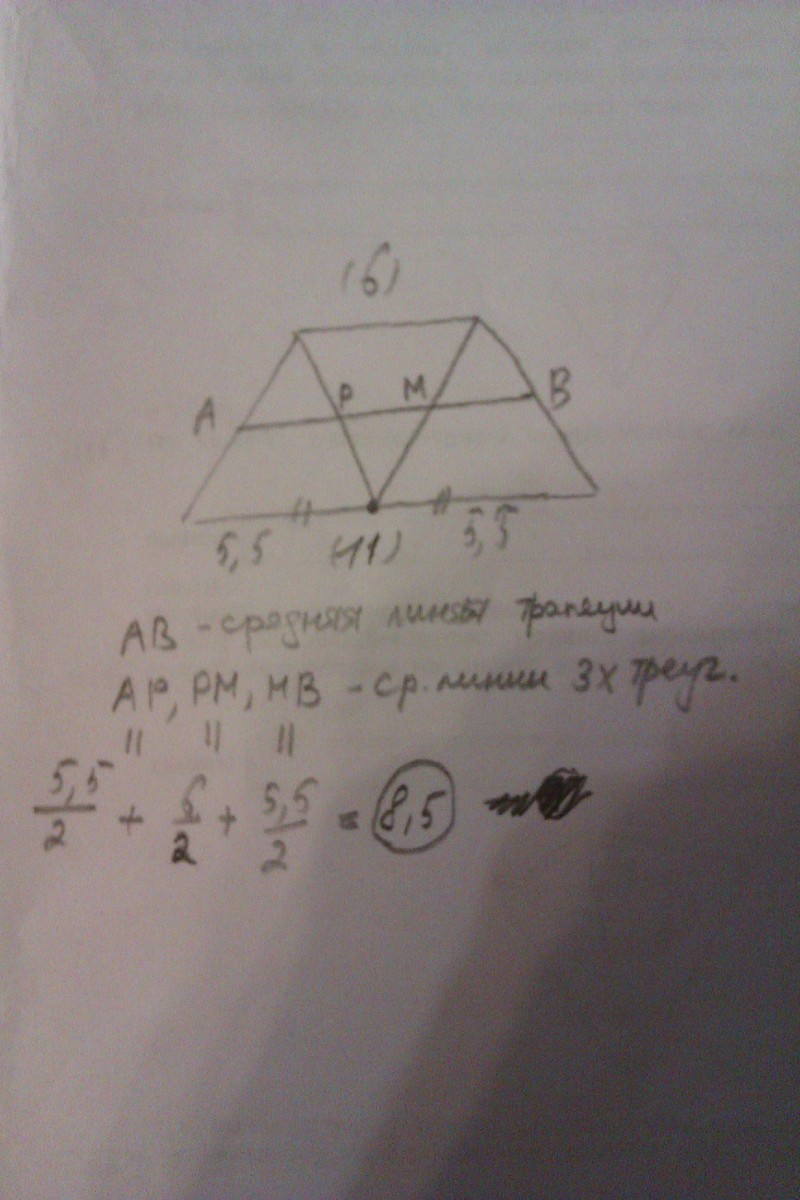 (6)
A P M B
5,5 (11) 5,5
AB - средняя линия трапеции
AP, PM, MB - ср. линии 3х треуг.
" " "
5,5/2 + 6/2 + 5,5/2 = 8,5